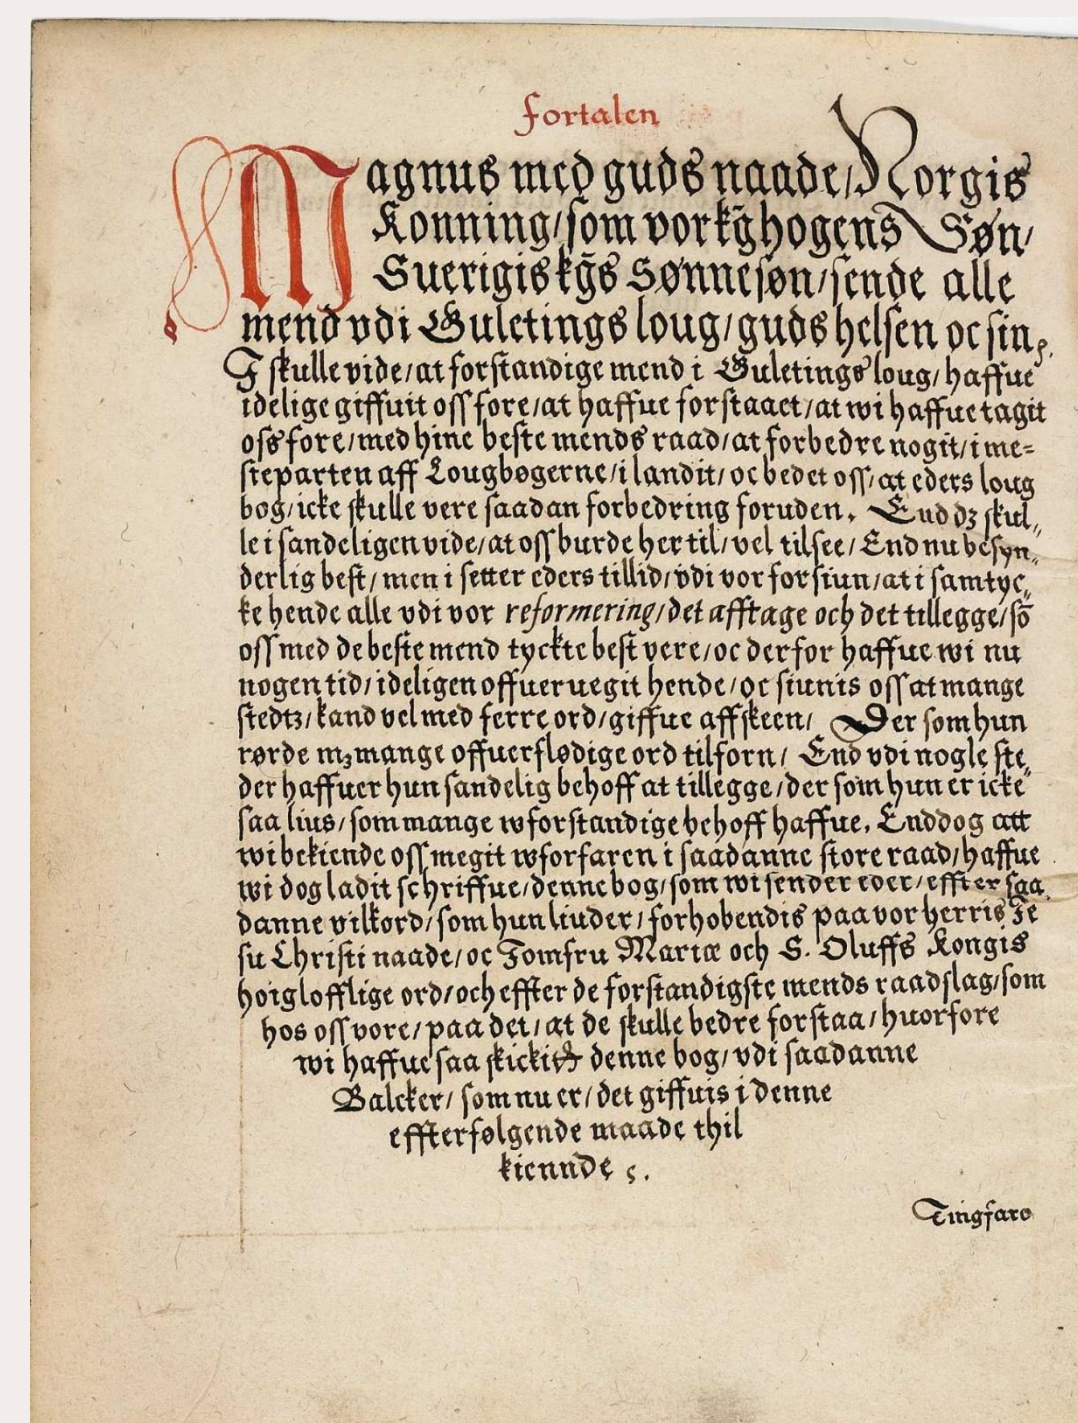 fortalen
Magnus med guds naade/ Norgis
Konning/ som vor kg̃ hogens Søn/
Suerigis kg̃s Sønnesøn/ sende alle
mend vdi Guletings loug/ guds helsen oc sin.
J skulle vide/ at forstandige mend i Guletings loug/ haffue
idelige giffuit oss fore/ at haffue forstaaet/ at wi haffue tagit
oss fore/ med hine beste mends raad/ at forbedre nogit/ i me=
steparten aff Lougbøgerne/ i landit/ oc bedet oss/ at eders loug
bog/ icke skulle vere saadan forbedring foruden. End dꝫ skul„
le i sandeligen vide/ at oss burde her til/ vel tilsee/ End nu besyn„
derlig best/ men i setter eders tillid/ vdi vor forsiun/ at i samtyc„
ke hende alle vdi vor reformering/ det afftage och det tillegge/ sõ
oss med de beste mend tyckte best vere/ oc derfor haffue wi nu
nogen tid/ ideligen offueruegit hende/ oc siunis oss at mange
stedtꝫ/ kand vel med ferre ord/ giffue affskeen/ Der som hun
rørde mꝫ mange offuerflødige ord tilforn/ End vdi nogle ste„
der haffuer hun sandelig behoff at tillegge/ der som hun er icke
saa lius/ som mange wforstandige behoff haffue. Enddog att
wi bekiende oss megit wforfaren i saadanne store raad/ haffue
wi dog ladit schriffue/ denne bog/ som wi sender eder/ effter saa
danne vilkord/ som hun liuder/ forhobendis paa vor herris Je
su Christi naade/ oc Jomfru Mariæ och S. Oluffs Kongis
hoiglofflige ord/ och effter de forstandigste mends raadslag/ som
hos oss vore/ paa det/ at de skulle bedre forstaa/ huorfore
wi haffue saa skickit denne bog/ vdi saadanne
Balcker/ som nu er/ det giffuis i denne
effterfølgende maade thil
kiennde ꝫ.
Tingfare